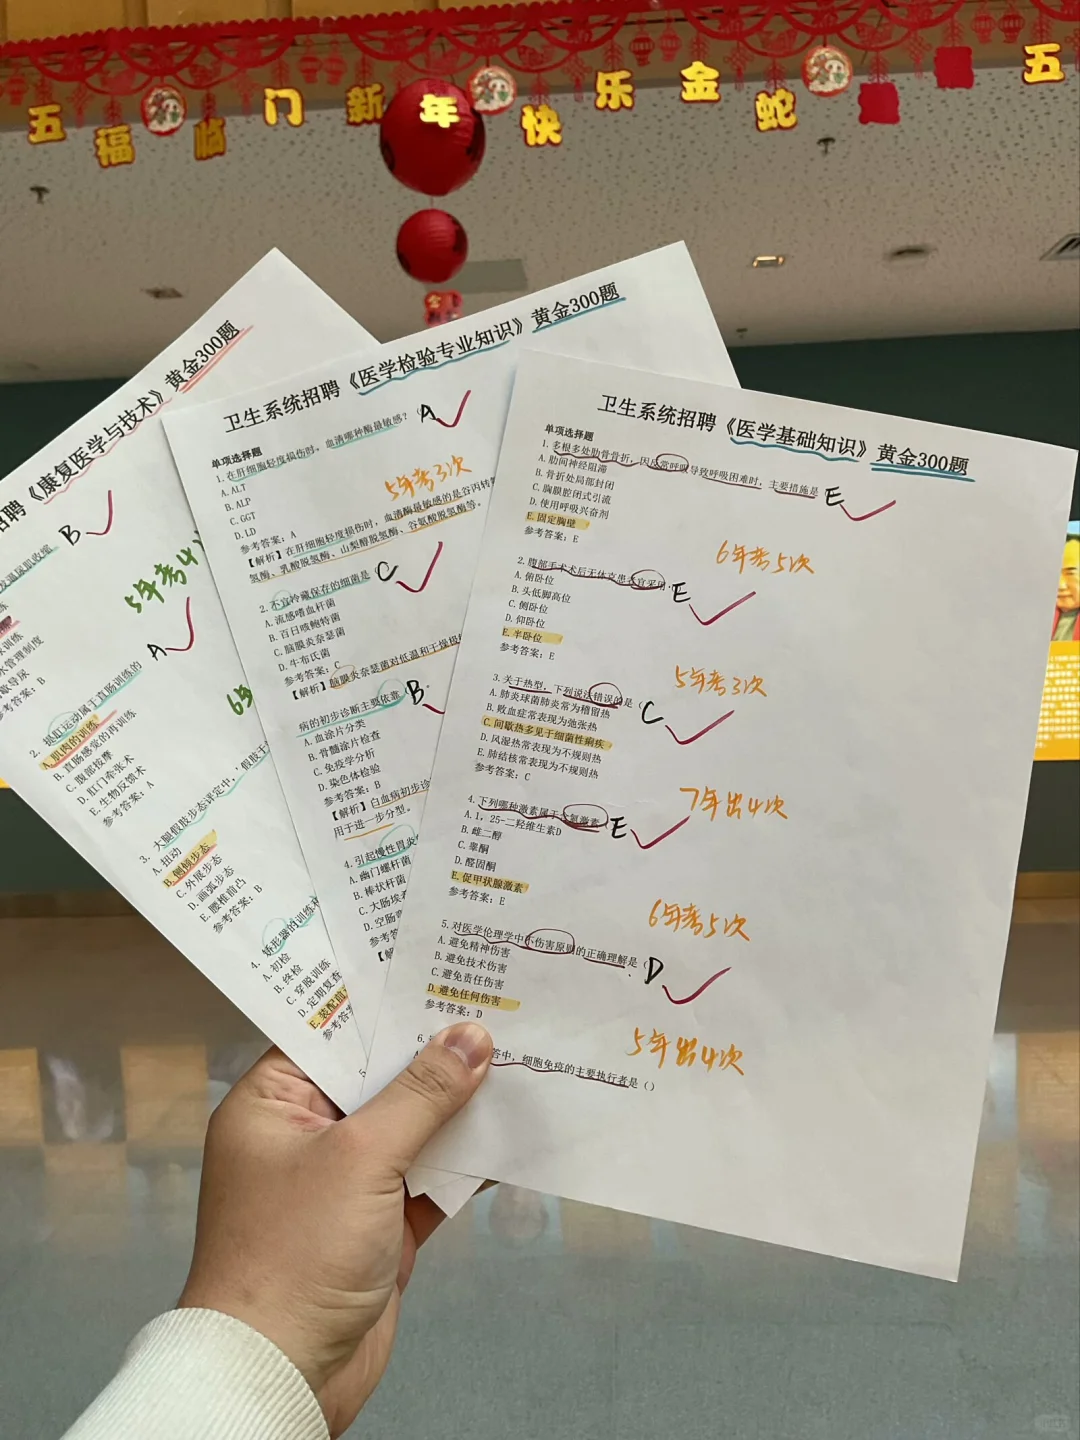 五福临门新年快乐金蛇
五
招聘《康复医学与技术》黄金300题
B
5年考4
训练
水管理制度
歇导尿
参考答案：B
A
2. 提肛运动属于直肠训练的
A. 肌肉的训练
B. 直肠感觉的再训练
C. 腹部按摩
D. 肛门牵张术
E. 生物反馈术
参考答案：A
6年
3. 大腿假肢步态评定中，
A. 扭动
B. 侧倾步态
C. 外展步态
D. 画弧步态
E. 腰椎前凸
参考答案：B
4. 矫形器的训练
A. 初检
B. 终检
C. 穿脱训练
D. 定期复查
E. 装配前
参考答案
5
卫生系统招聘《医学检验专业知识》黄金300题
单项选择题
1. 在肝细胞轻度损伤时，血清哪种酶最敏感？（
A
A. ALT
B. ALP
C. GGT
D. LD
5年考3次
参考答案：A
【解析】在肝细胞轻度损伤时，血清酶最敏感的是谷丙转
氢酶、乳酸脱氢酶、山梨醇脱氢酶、谷氨酸脱氢酶等。
2. 不宜冷藏保存的细菌是（
C
A. 流感嗜血杆菌
B. 百日咳鲍特菌
C. 脑膜炎奈瑟菌
D. 牛布氏菌
参考答案：C
【解析】脑膜炎奈瑟菌对低温和干燥极
病的初步诊断主要依靠
B
A. 血涂片分类
B. 骨髓涂片检查
C. 免疫学分析
D. 染色体检验
参考答案：B
【解析】白血病初步诊
用于进一步分型。
4. 引起慢性胃炎
A. 幽门螺杆菌
B. 棒状杆菌
C. 大肠埃
D. 空肠
参考答
【解
卫生系统招聘《医学基础知识》黄金300题
单项选择题
1. 多根多处肋骨骨折，因反常呼吸导致呼吸困难时，主要措施是
E
A. 肋间神经阻滞
B. 骨折处局部封闭
C. 胸膜腔闭式引流
D. 使用呼吸兴奋剂
E. 固定胸壁
参考答案：E
6年考5次
2. 腹部手术术后无休克患者宜采用
E
A. 俯卧位
B. 头低脚高位
C. 侧卧位
D. 仰卧位
E. 半卧位
参考答案：E
5年考3次
3. 关于热型，下列说法错误的是（
C
A. 肺炎球菌肺炎常为稽留热
B. 败血症常表现为弛张热
C. 间歇热多见于细菌性痢疾
D. 风湿热常表现为不规则热
E. 肺结核常表现为不规则热
参考答案：C
7年出4次
4. 下列哪种激素属于含氮激素（
E
A. 1，25-二羟维生素D
B. 雌二醇
C. 睾酮
D. 醛固酮
E. 促甲状腺激素
参考答案：E
6年考5次
5. 对医学伦理学中不伤害原则的正确理解是（
D
A. 避免精神伤害
B. 避免技术伤害
C. 避免责任伤害
D. 避免任何伤害
参考答案：D
5年出4次
6.
答中，细胞免疫的主要执行者是（）